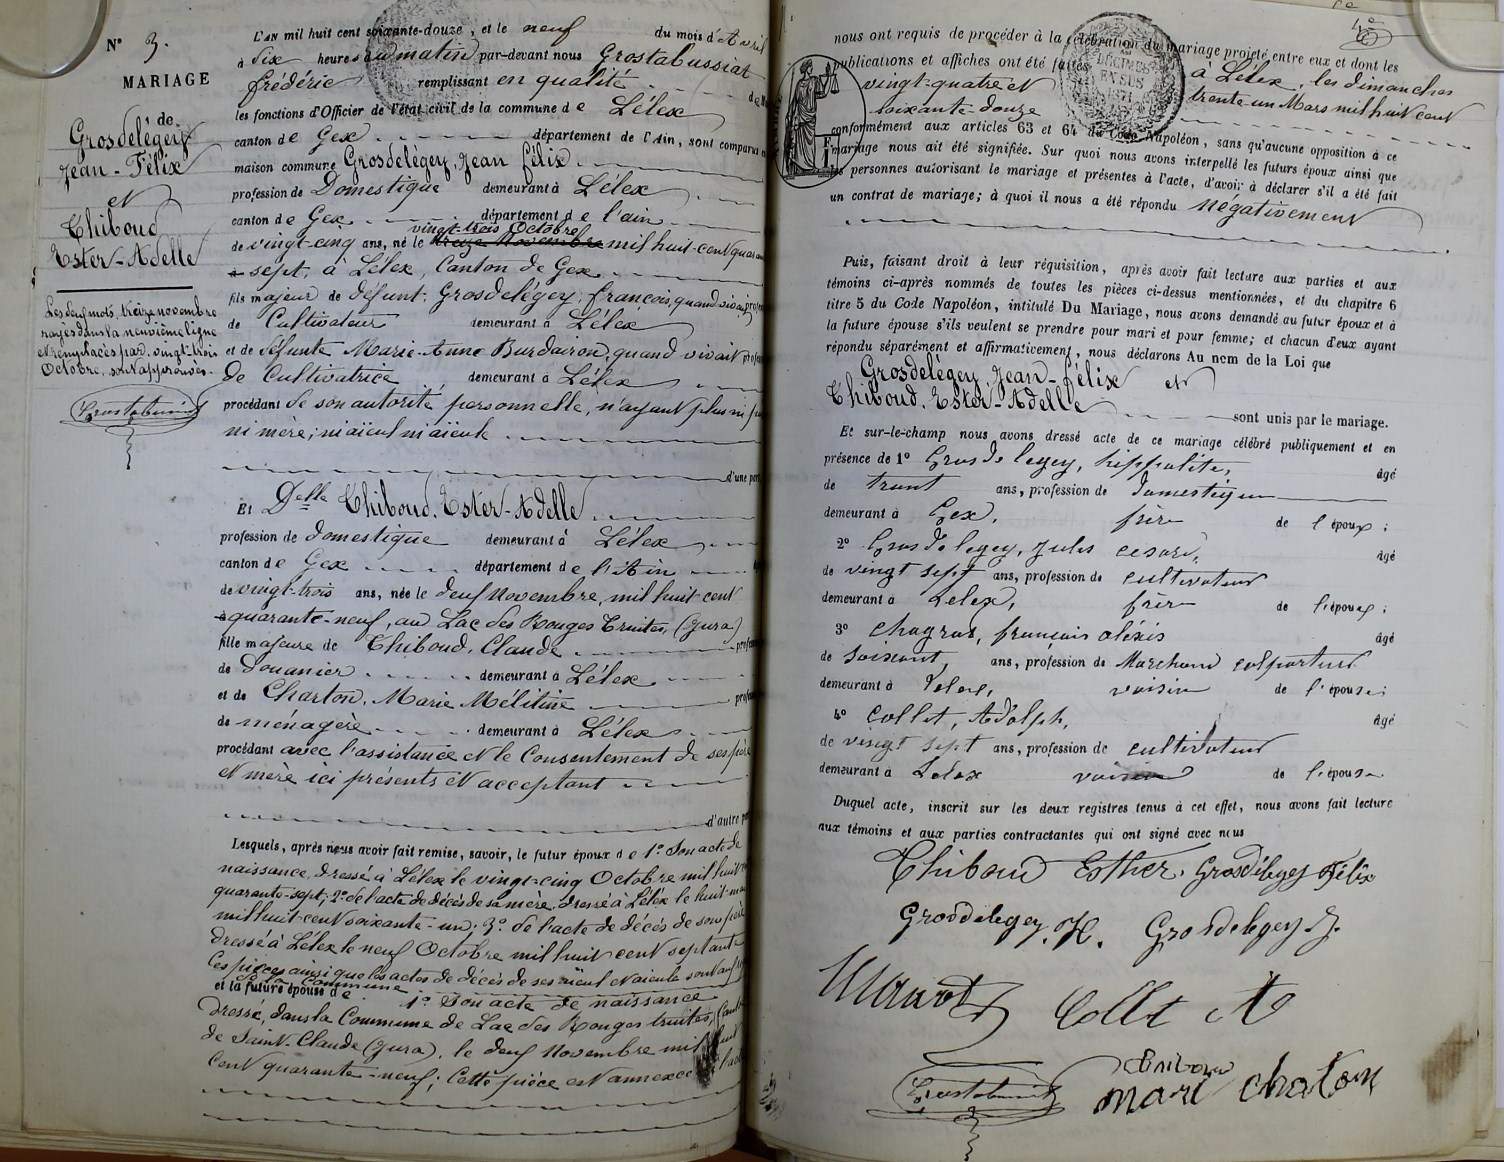 N° 3.
MARIAGE
de
Grosdelégey
Jean-Félix
et
Thiboud
Ester-Adelle
Les deux mots, treize novembre
rayés dans la neuvième ligne
et remplacés par, vingt-trois
Octobre, sont approuvés.
Grostabussiat
L'AN mil huit cent soixante-douze, et le neuf du mois d'Avril
à six heures du matin par-devant nous Grostabussiat
frédéric remplissant en qualité de
les fonctions d'Officier de l'état civil de la commune de Lélex
canton de Gex département de l'Ain, sont comparus
maison commune Grosdelégey, Jean félix
profession de Domestique demeurant à Lélex
canton de Gex département de l'ain
vingt-trois Octobre
de vingt-cinq ans, né le treize Novembre mil huit-cent quarante
sept, à Lélex, Canton de Gex
fils majeur de défunt, Grosdelégey, françois, quand vivait
de Cultivateur demeurant à Lélex
et de défunte Marie-Anne Burdairon, quand vivait
de Cultivatrice demeurant à Lélex
procédant de son autorité personnelle, n'ayant plus ni
ni mère; ni aïeul ni aïeule
d'une part
Et Delle Thiboud, Ester-Adelle
profession de domestique demeurant à Lélex
canton de Gex département de l'Ain
de vingt-trois ans, née le deux Novembre, mil huit-cent
quarante-neuf, au Lac des Rouges Truites, (Jura)
fille majeure de Thiboud, Claude
de Douanier demeurant à Lélex
et de Charton, Marie Mélitine
de ménagère demeurant à Lélex
procédant avec l'assistance et le Consentement de ses père
et mère ici présents et acceptant
d'autre part
Lesquels, après nous avoir fait remise, savoir, le futur époux de 1° Son acte de
naissance, dressé à Lélex le vingt-cinq Octobre mil huit
quarante-sept; 2° de l'acte de décès de sa mère, dressé à Lélex le huit-mai
mil huit-cent soixante-un; 3° de l'acte de décès de son père
dressé à Lélex le neuf Octobre mil huit cent septante
Ces pièces ainsi que les actes de décès de ses aïeul et aïeule sont aux
Commune
et la future épouse de 1° Son acte de naissance
dressé, dans la Commune de Lac des Rouges truites,
de Saint-Claude (Jura), le deux Novembre mil huit
cent quarante-neuf; Cette pièce est annexée
nous ont requis de procéder à la célébration du mariage projeté entre eux et dont les
publications et affiches ont été faites à Lélex, les dimanches
vingt-quatre et trente un Mars mil huit cent
soixante-douze
conformément aux articles 63 et 64 du Code Napoléon, sans qu'aucune opposition à ce
mariage nous ait été signifiée. Sur quoi nous avons interpellé les futurs époux ainsi que
les personnes autorisant le mariage et présentes à l'acte, d'avoir à déclarer s'il a été fait
un contrat de mariage; à quoi il nous a été répondu négativement
Puis, faisant droit à leur réquisition, après avoir fait lecture aux parties et aux
témoins ci-après nommés de toutes les pièces ci-dessus mentionnées, et du chapitre 6
titre 5 du Code Napoléon, intitulé Du Mariage, nous avons demandé au futur époux et à
la future épouse s'ils veulent se prendre pour mari et pour femme; et chacun d'eux ayant
répondu séparément et affirmativement, nous déclarons Au nom de la Loi que
Grosdelégey, Jean-félix et
Thiboud, Ester-Adelle sont unis par le mariage.
Et sur-le-champ nous avons dressé acte de ce mariage célébré publiquement et en
présence de 1° Grosdelegey, hippolite, âgé
de trent ans, profession de Domestique
demeurant à Gex, frère de l'époux;
2° Grosdelegey, Jules cesars, âgé
de vingt sept ans, profession de cultivateur
demeurant à Lelex, frère de l'époux;
3° Chagras, français aléxis âgé
de soixant, ans, profession de Marchand colporteur
demeurant à Lelex, voisin de l'épouse;
4° Collet, Adolph, âgé
de vingt sept ans, profession de cultivateur
demeurant à Lelex voisin de l'épouse
Duquel acte, inscrit sur les deux registres tenus à cet effet, nous avons fait lecture
aux témoins et aux parties contractantes qui ont signé avec nous
Thiboud Esther. Grosdélegey Félix
Grosdelegey. H. Grosdelegey J.
Collet A
Thiboud
Grostabussiat mari chatom